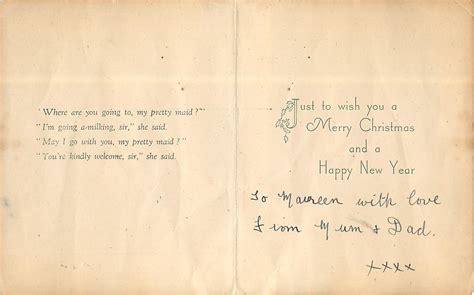 "Where are you going to, my pretty maid?"
"I'm going a-milking, sir," she said.
"May I go with you, my pretty maid?"
"You're kindly welcome, sir," she said.
Just to wish you a
Merry Christmas
and a
Happy New Year
To Maureen with love
From Mum & Dad.
xxxx